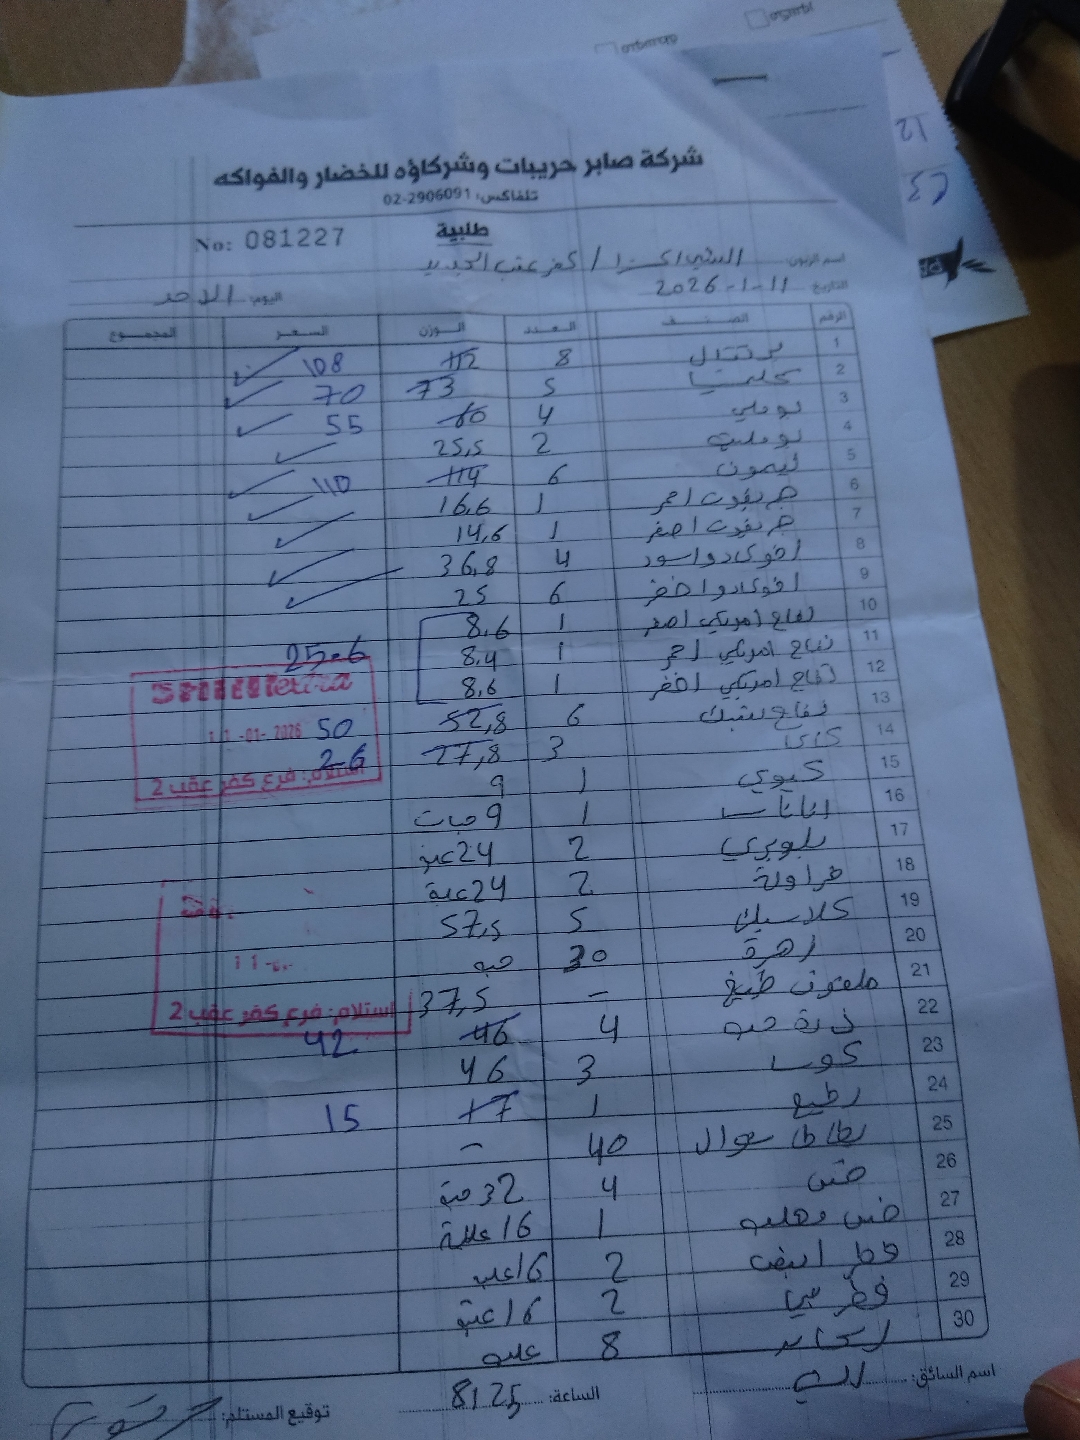 شركة صابر حريبات وشركاؤه للخضار والفواكه
تلفاكس: 02-2906091
طلبية
No: 081227
اسم الزبون: / كفر عقب الجديد
التاريخ 11-1-2026 اليوم: الاحد
الرقم الصنف العدد الوزن السعر المجموع
1 برتقال 8 112 108
2 كلمنتينا 5 73 70
3 بوملي 4 60 55
4 بوملي 2 25,5
5 ليمون 6 114 110
6 جريفوت احمر 1 16,6
7 جريفوت اصفر 1 14,6
8 افوكادو اسود 4 36,8
9 افوكادو اخضر 6 25
10 تفاح امريكي اصفر 1 8,6
11 تفاح امريكي احمر 1 8,4 25.6
12 تفاح امريكي اخضر 1 8,6
13 تفاح 6 52,8 50
14 كاكا 3 27,8 26
15 كيوي 1 9
16 اناناس 1 9 حبات
17 بلوبري 2 24 علبة
18 فراولة 2 24 علبة
19 كلاسيك 5 57,5
20 زهرة 30 حبه
21 ملفوف طبيخ - 37,5
22 ذرة حبه 4 46 42
23 كوسا 3 46
24 1 17 15
25 بطاطا شوال 40 -
26 خس 4 32 حبة
27 خس 1 16
28 فطر ابيض 2 16 علب
29 فطر بني 2 16 علبة
30 8 علبه
11-01-2026
استلام: فرع كفر عقب 2
استلام: فرع كفر عقب 2
اسم السائق: الساعة: 8:25 توقيع المستلم: